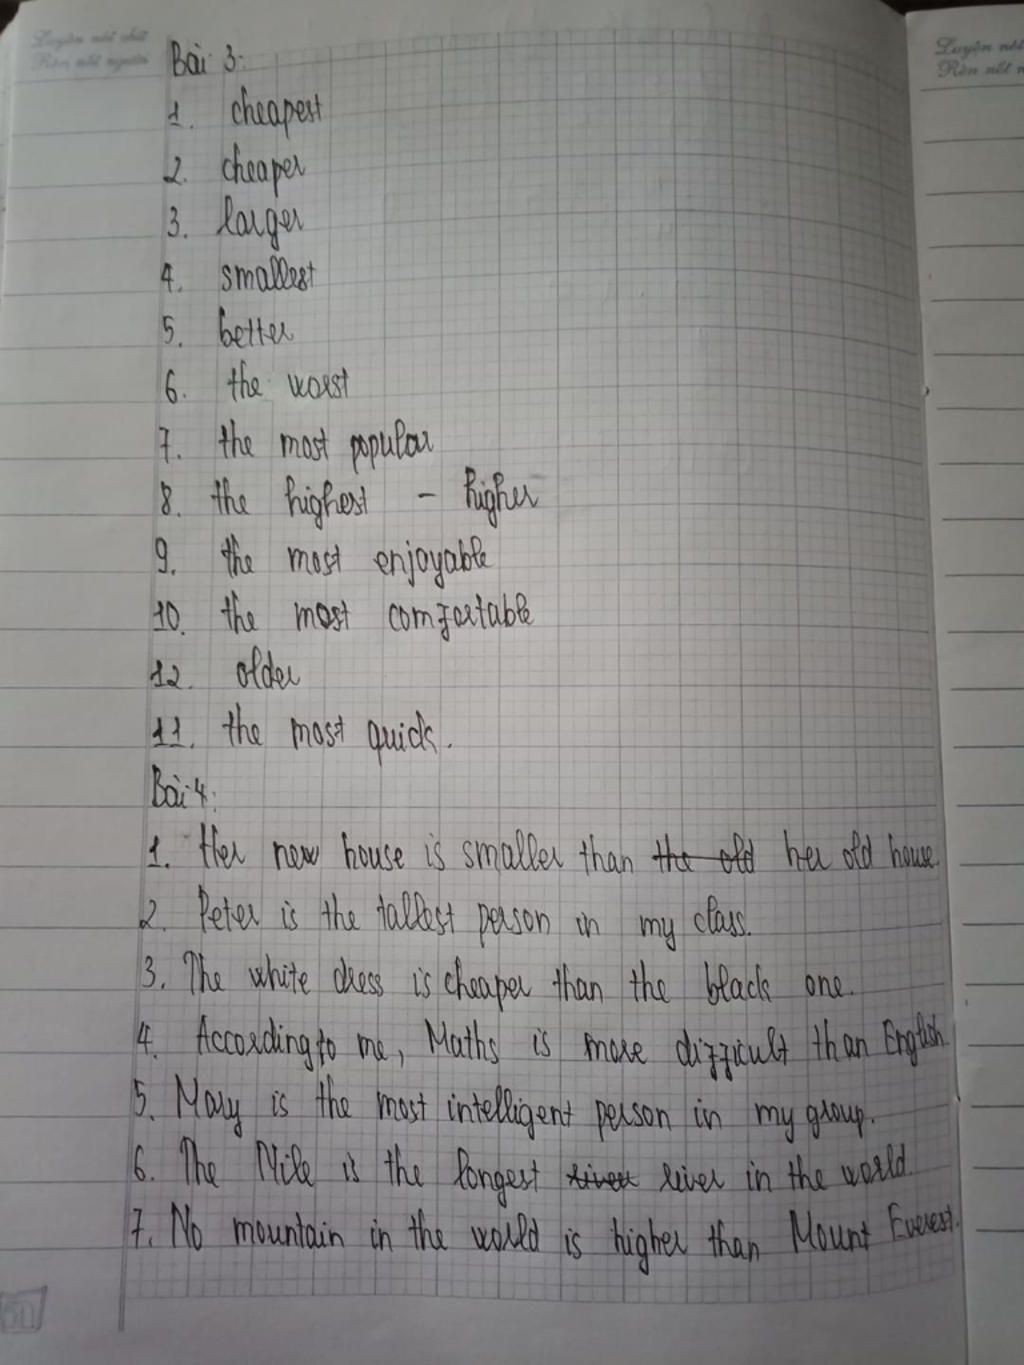 Luyện nét chữ
Rèn nết người
Luyện nét
Rèn nết n
Bài 3:
1. cheapest
2. cheaper
3. larger
4. smallest
5. better
6. the worst
7. the most popular
8. the highest - higher
9. the most enjoyable
10. the most comfortable
12. older
11. the most quick.
Bài 4:
1. Her new house is smaller than the old her old house.
2. Peter is the tallest person in my class.
3. The white dress is cheaper than the black one.
4. According to me, Maths is more difficult than English.
5. Mary is the most intelligent person in my group.
6. The Nile is the longest river river in the world.
7. No mountain in the world is higher than Mount Everest.